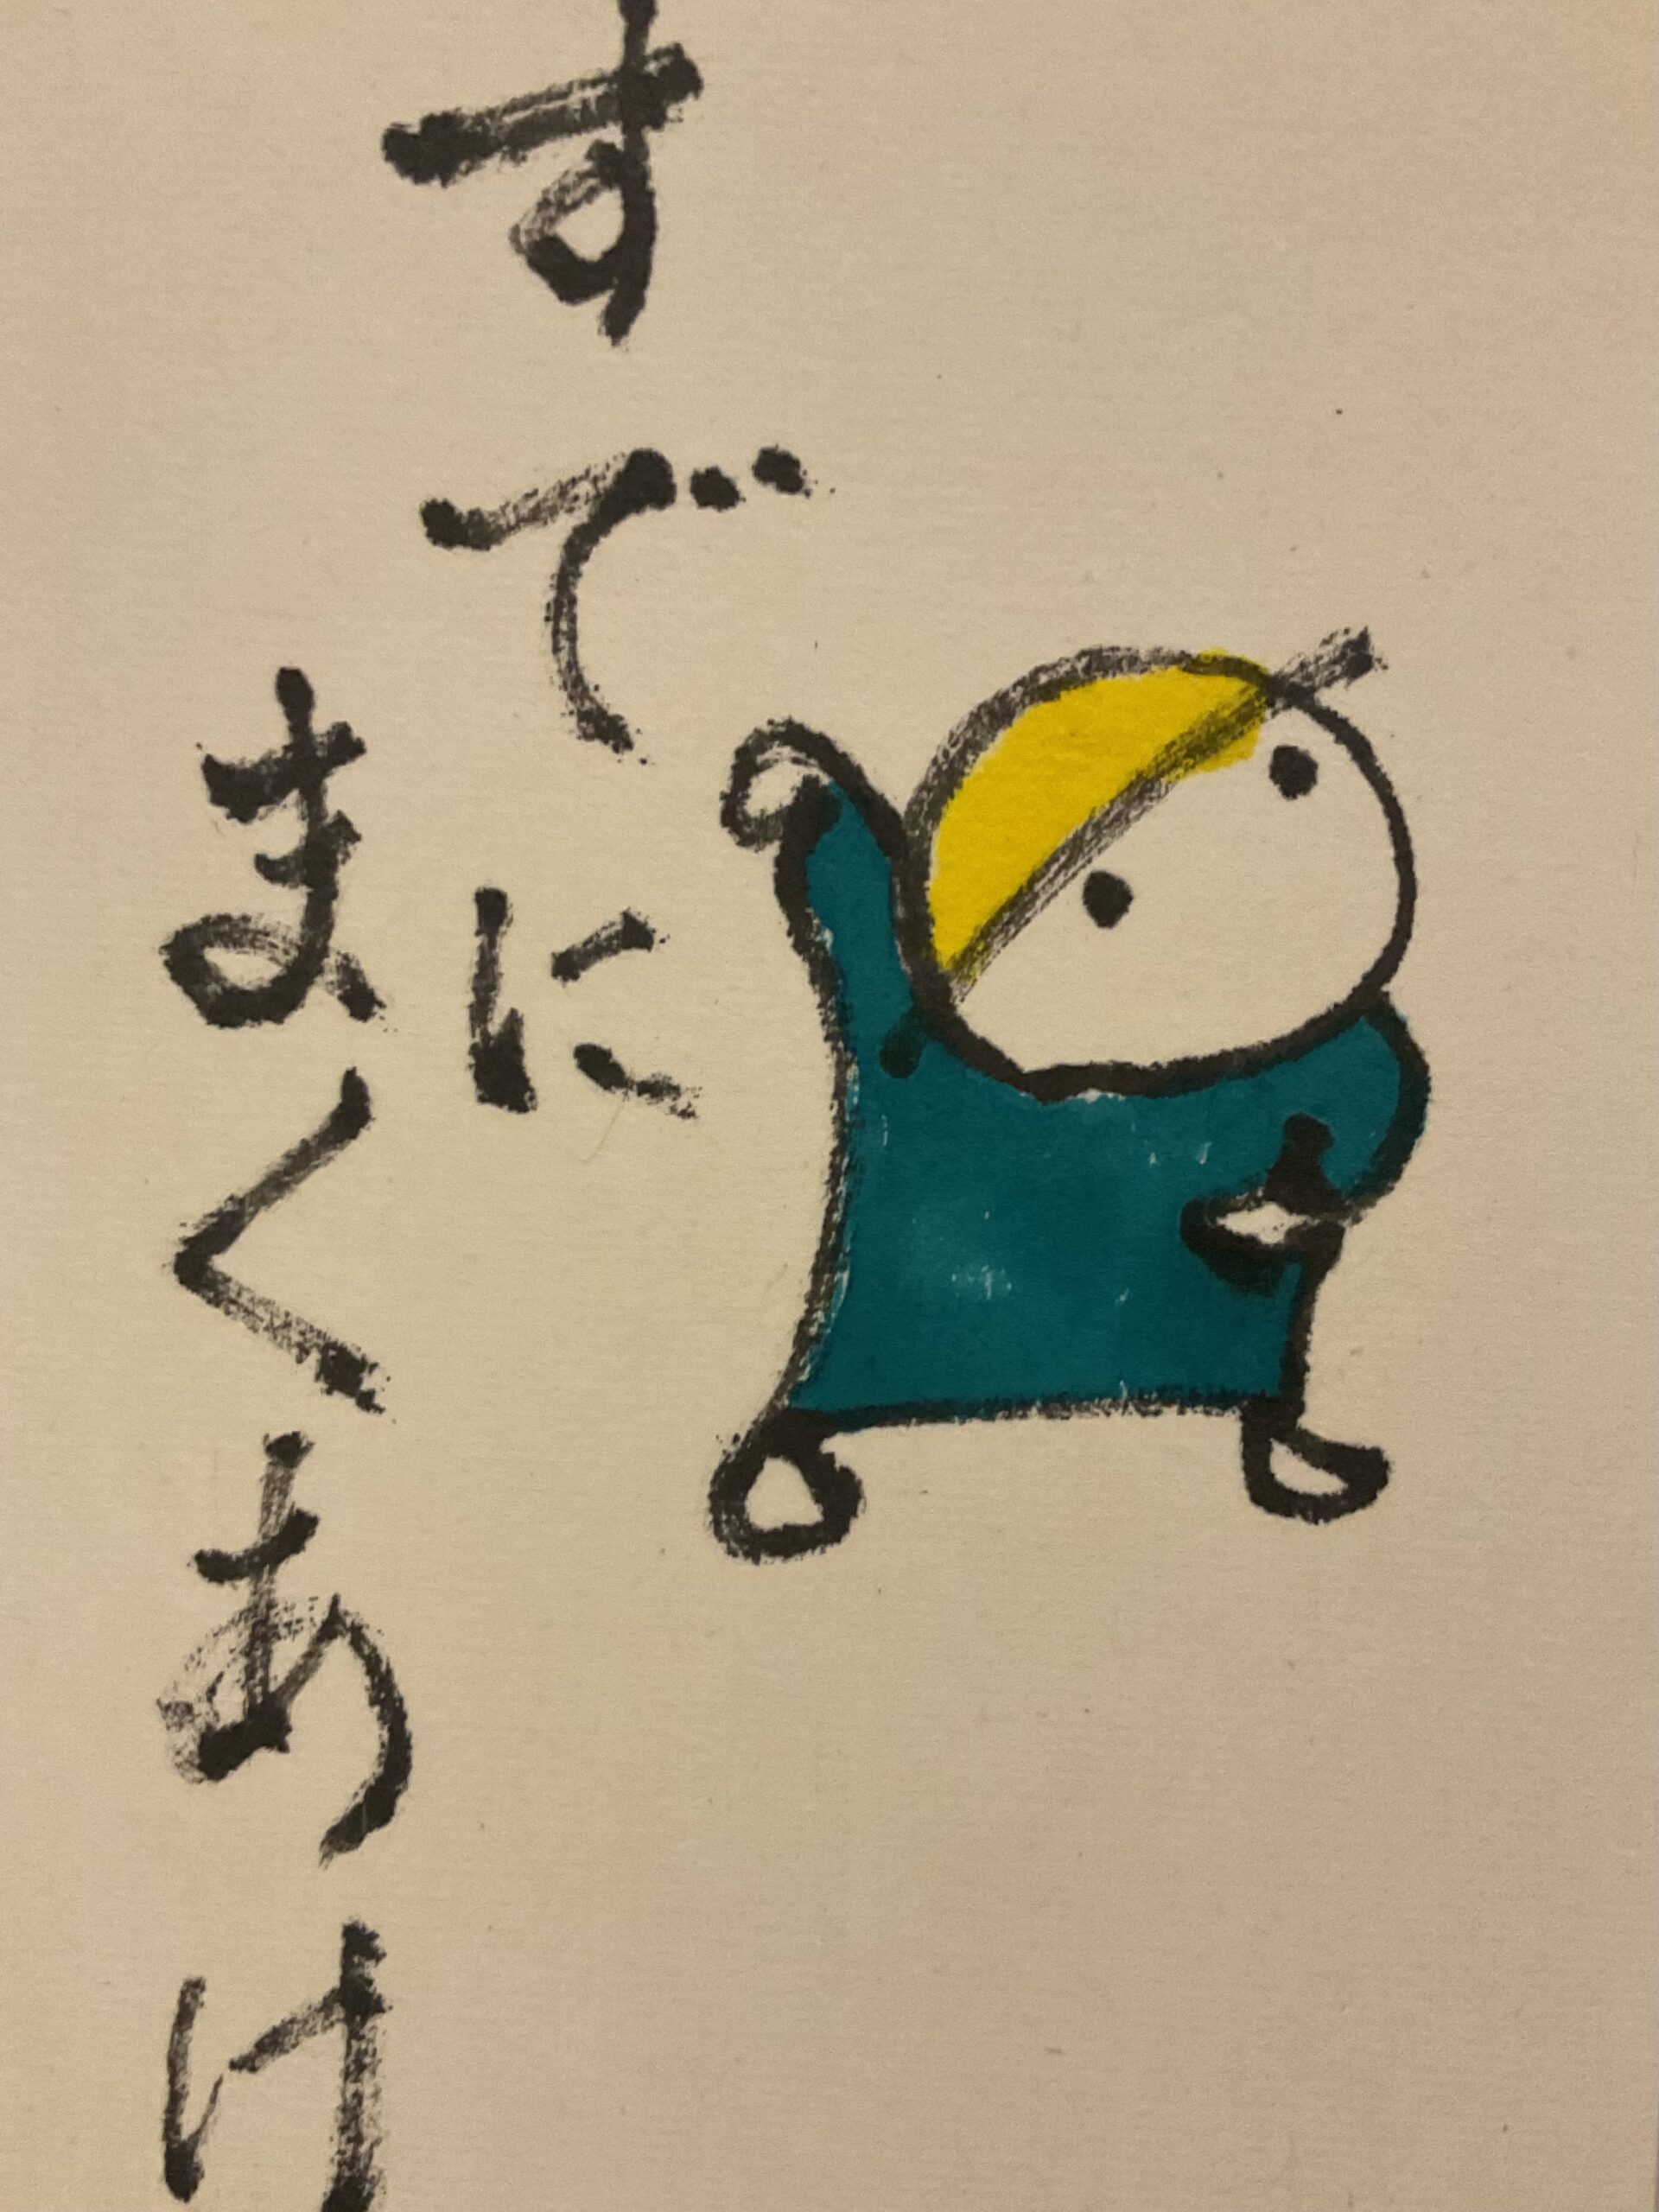 すでに
まくあけ